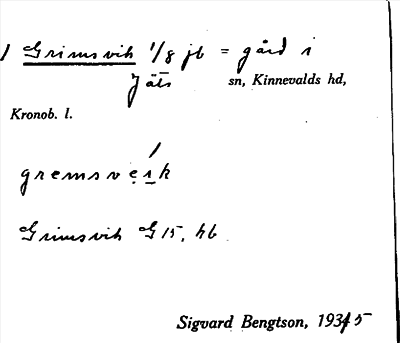 1 Grimsvik 1/8 jb = gård i
Jäts sn, Kinnevalds hd,
Kronob. l.
gremsvẹi̱k
Grimsvik G 15, hb.
Sigvard Bengtson, 1935